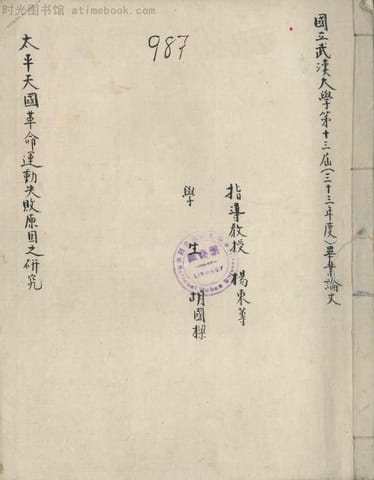 时光图书馆 atimebook.com
987
國立武漢大學第十三屆(三十三年度)畢業論文
指導教授 楊東蓴
學生 胡國樑
太平天國革命運動失敗原因之研究